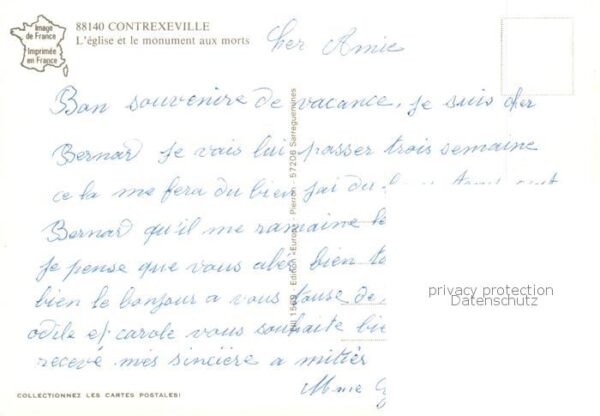 Image
de France
Imprimée
en France
88140 CONTREXEVILLE
L'église et le monument aux morts
Cher Amie
Bon souvenire de vacance, je suis cher
Bernard je vais lui passer trois semaine
ce la me fera du bien j'ai du
Bernard qu'il me ramaine
je pense que vous abée bien
bien le bonjour a vous touse de
odile et carole vous souhaite bie
recevé mes sincière a mitiér
Mme
57206 Sarreguemines
Pierron
Edition «Europ»
privacy protection
Datenschutz
COLLECTIONNEZ LES CARTES POSTALES!